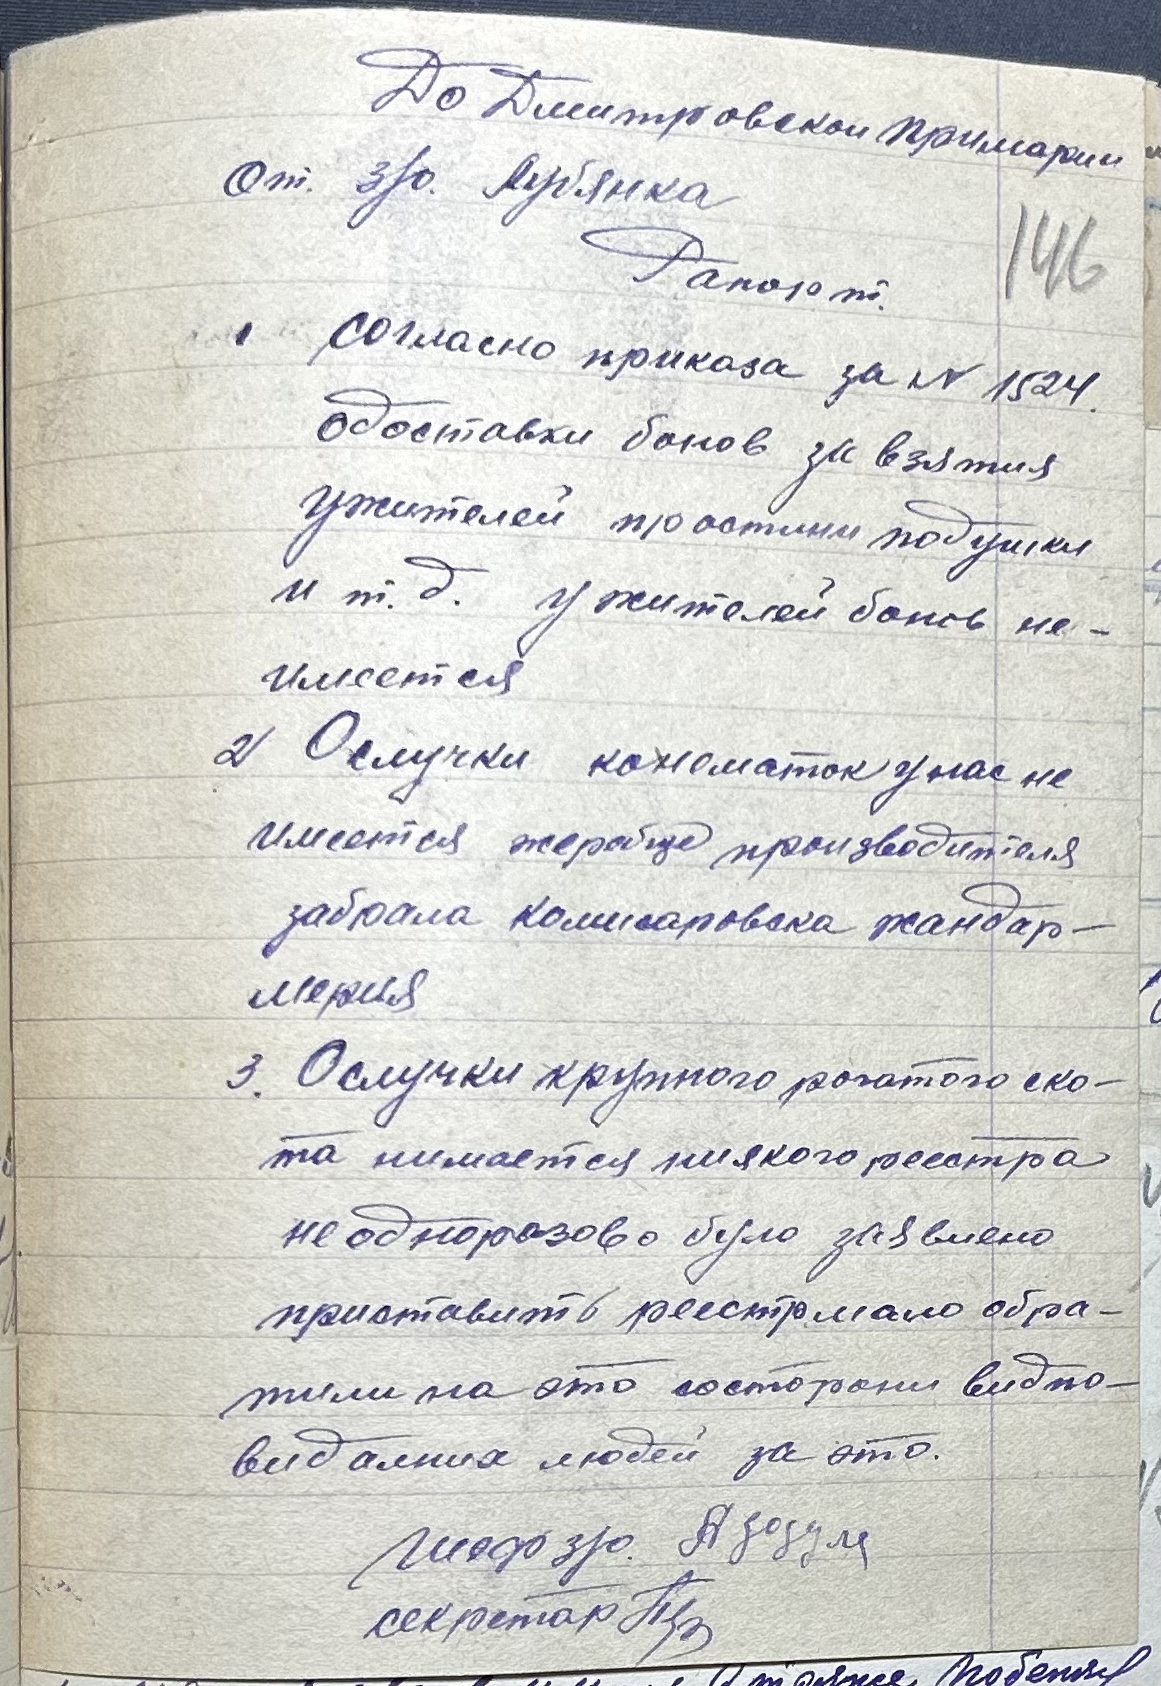 До Дмитровской примарии
От. з/о. Лубянка
146
Рапорт.
1 Согласно приказа за № 1524.
одоставки бонов за взятия
ужителей простини подушки
и т.д. ужителей бонов не-
имеется
2 Ослучки кономаток унас не
имеется жеребце производителя
забрала комисаровска жандар-
мерия
3. Ослучки крупного рогатого ско-
та нимается ниякого реестра
неодноразово було заявлено
приставить реестр мало обра-
тили на это состорони видпо-
видалних людей за это.
Шеф з/о.
секретар